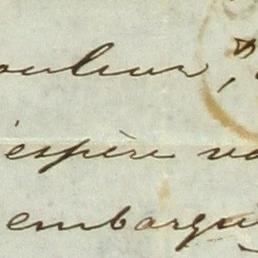 ouleur,
espère vo
embarqu